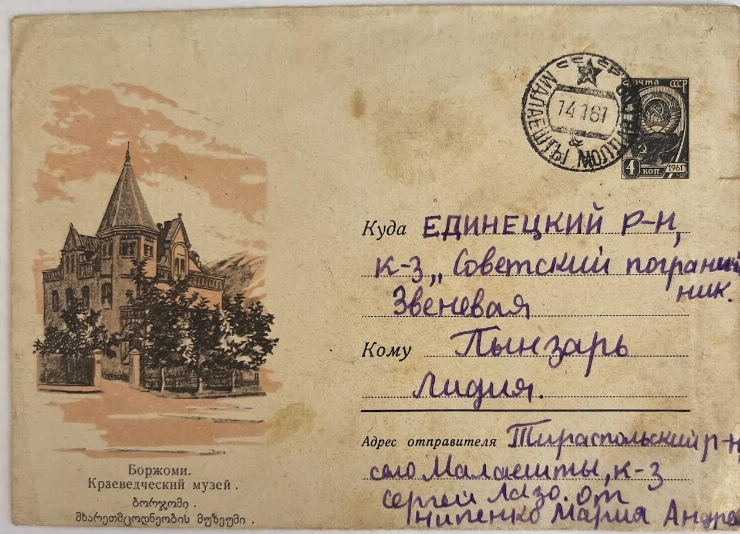 ПОЧТА СССР
14 1 61
4 КОП 1961
Куда ЕДИНЕЦКИЙ Р-Н,
К-З „Советский погранич
ник.
Звеневая
Кому Пынзарь
Лидия.
Адрес отправителя Тираспольский р-н
село Малаешты, к-з
Сергей Лазо. от
нипенко Мария Андре
Боржоми.
Краеведческий музей.
ბორჯომი.
მხარეთმცოდნეობის მუზეუმი.